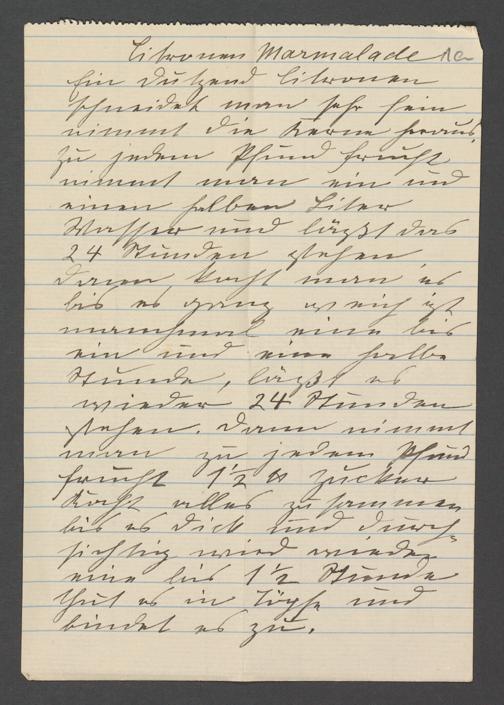 Citronen Marmalade 10
Ein Dutzend Citronen
schneidet man sehr fein
nimmt die Kerne heraus.
Zu jedem Pfund Frucht
nimmt man ein und
einen halben Liter
Wasser und läßt das
24 Stunden stehen,
dann kocht man es
bis es ganz weich ist
manchmal eine bis
ein und eine halbe
Stunde, läßt es
wieder 24 Stunden
stehen. Dann nimmt
man zu jedem Pfund
Frucht 1 1/2 ℔ Zucker
kocht alles zusammen
bis es dick und durch-
sichtig wird wieder
eine bis 1 1/2 Stunde
thut es in Töpfe und
bindet es zu.